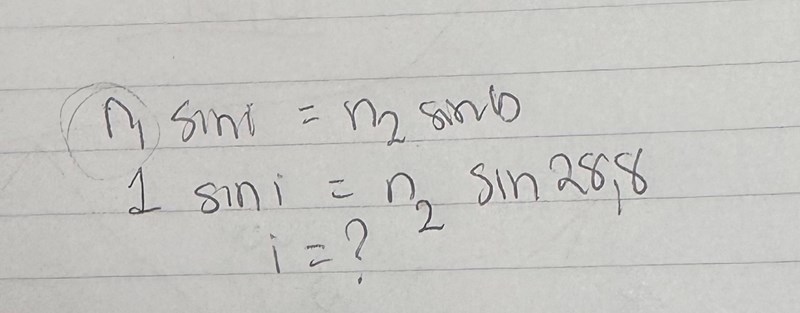 n₁ sin i = n₂ sin b
1 sin i = n₂ sin 28,8
i = ?